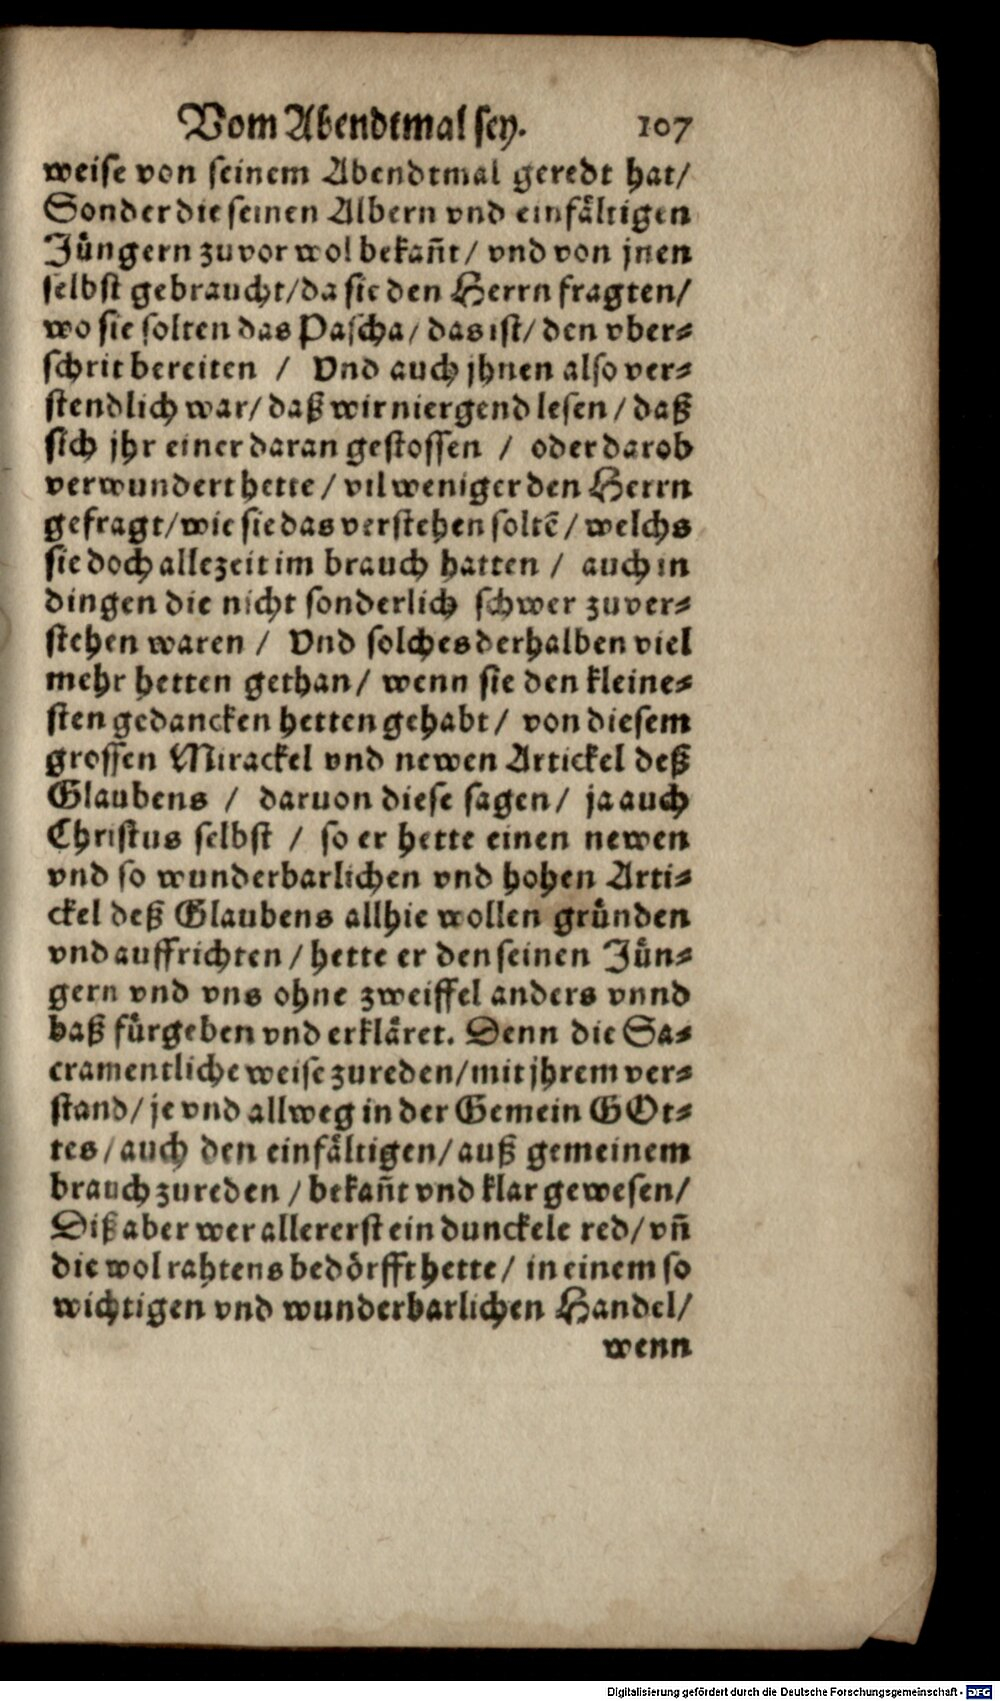 Vom Abendtmal sey. 107
weise von seinem Abendtmal geredt hat/
Sonder die seinen Albern vnd einfältigen
Jüngern zuvor wol bekañt/ vnd von jnen
selbst gebraucht/ da sie den Herrn fragten/
wo sie solten das Pascha/ das ist/ den vber⸗
schrit bereiten / Vnd auch jhnen also ver⸗
stendlich war/ daß wir niergend lesen / daß
sich jhr einer daran gestossen / oder darob
verwundert hette / vil weniger den Herrn
gefragt/ wie sie das verstehen soltẽ / welchs
sie doch allezeit im brauch hatten / auch in
dingen die nicht sonderlich schwer zuver⸗
stehen waren / Vnd solches derhalben viel
mehr hetten gethan/ wenn sie den kleine⸗
sten gedancken hetten gehabt/ von diesem
grossen Mirackel vnd newen Artickel deß
Glaubens / daruon diese sagen/ ja auch
Christus selbst / so er hette einen newen
vnd so wunderbarlichen vnd hohen Arti⸗
ckel deß Glaubens allhie wollen gründen
vnd auffrichten / hette er den seinen Jün⸗
gern vnd vns ohne zweiffel anders vnnd
baß fürgeben vnd erkläret. Denn die Sa⸗
cramentliche weise zureden/ mit jhrem ver⸗
stand/ je vnd allweg in der Gemein GOt⸗
tes / auch den einfältigen/ auß gemeinem
brauch zureden / bekañt vnd klar gewesen/
Diß aber wer allererst ein dunckele red/ vñ
die wol rahtens bedörfft hette / in einem so
wichtigen vnd wunderbarlichen Handel/
wenn
Digitalisierung gefördert durch die Deutsche Forschungsgemeinschaft - DFG